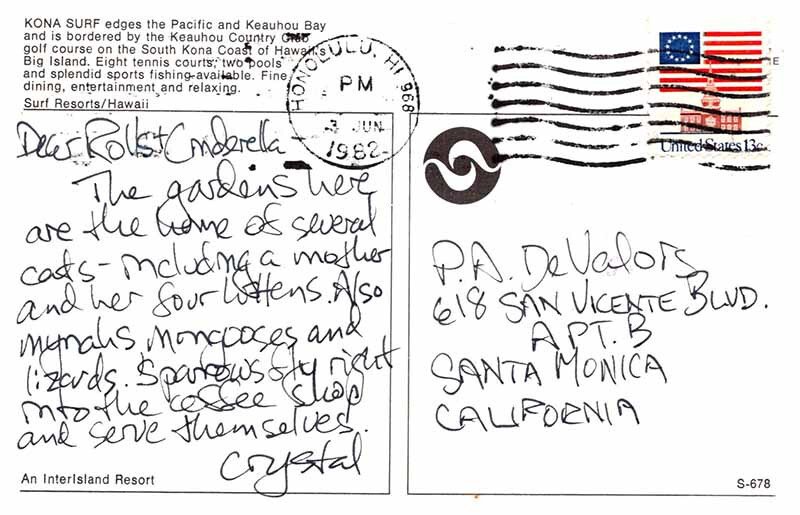 KONA SURF edges the Pacific and Keauhou Bay
and is bordered by the Keauhou Country Club
golf course on the South Kona Coast of Hawaii's
Big Island. Eight tennis courts, two pools
and splendid sports fishing available. Fine
dining, entertainment and relaxing.
Surf Resorts/Hawaii
HONOLULU, HI 968
PM
3 JUN
1982
United States 13c
Dear Rolls + Cinderella
The gardens here
are the home of several
cats - including a mother
and her four kittens. Also
mynahs, mongooses and
lizards. Sparrows fly right
into the coffee shop
and serve themselves.
Crystal
An InterIsland Resort
P.A. DeValois
618 SAN VICENTE BLVD.
APT. B
SANTA MONICA
CALIFORNIA
S-678